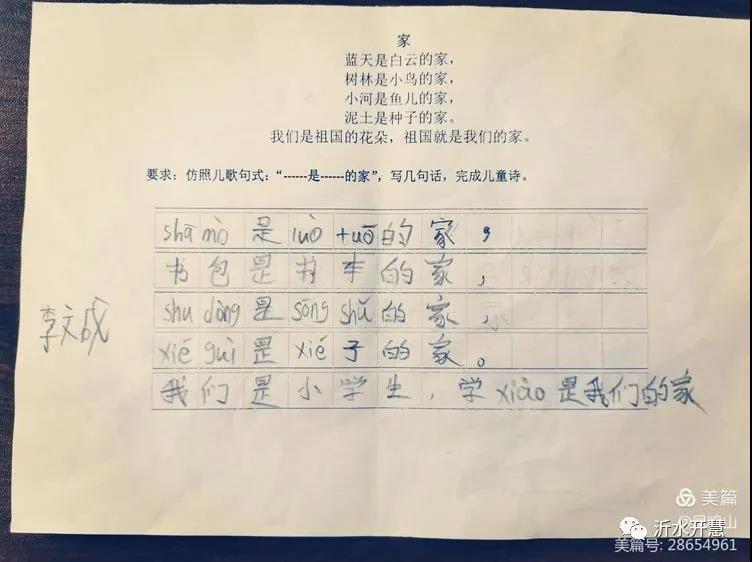 家
蓝天是白云的家，
树林是小鸟的家，
小河是鱼儿的家，
泥土是种子的家。
我们是祖国的花朵，祖国就是我们的家。
要求：仿照儿歌句式：“------是------的家”，写几句话，完成儿童诗。
shā mò 是 luò tuō 的家，
书包是书本的家，
shu dòng 是 sōng shǔ 的家，
李文成
xié guì 是 xié 子的家。
我们是小学生，学 xiào 是我们的家
美篇
沂水开慧
美篇号: 28654961